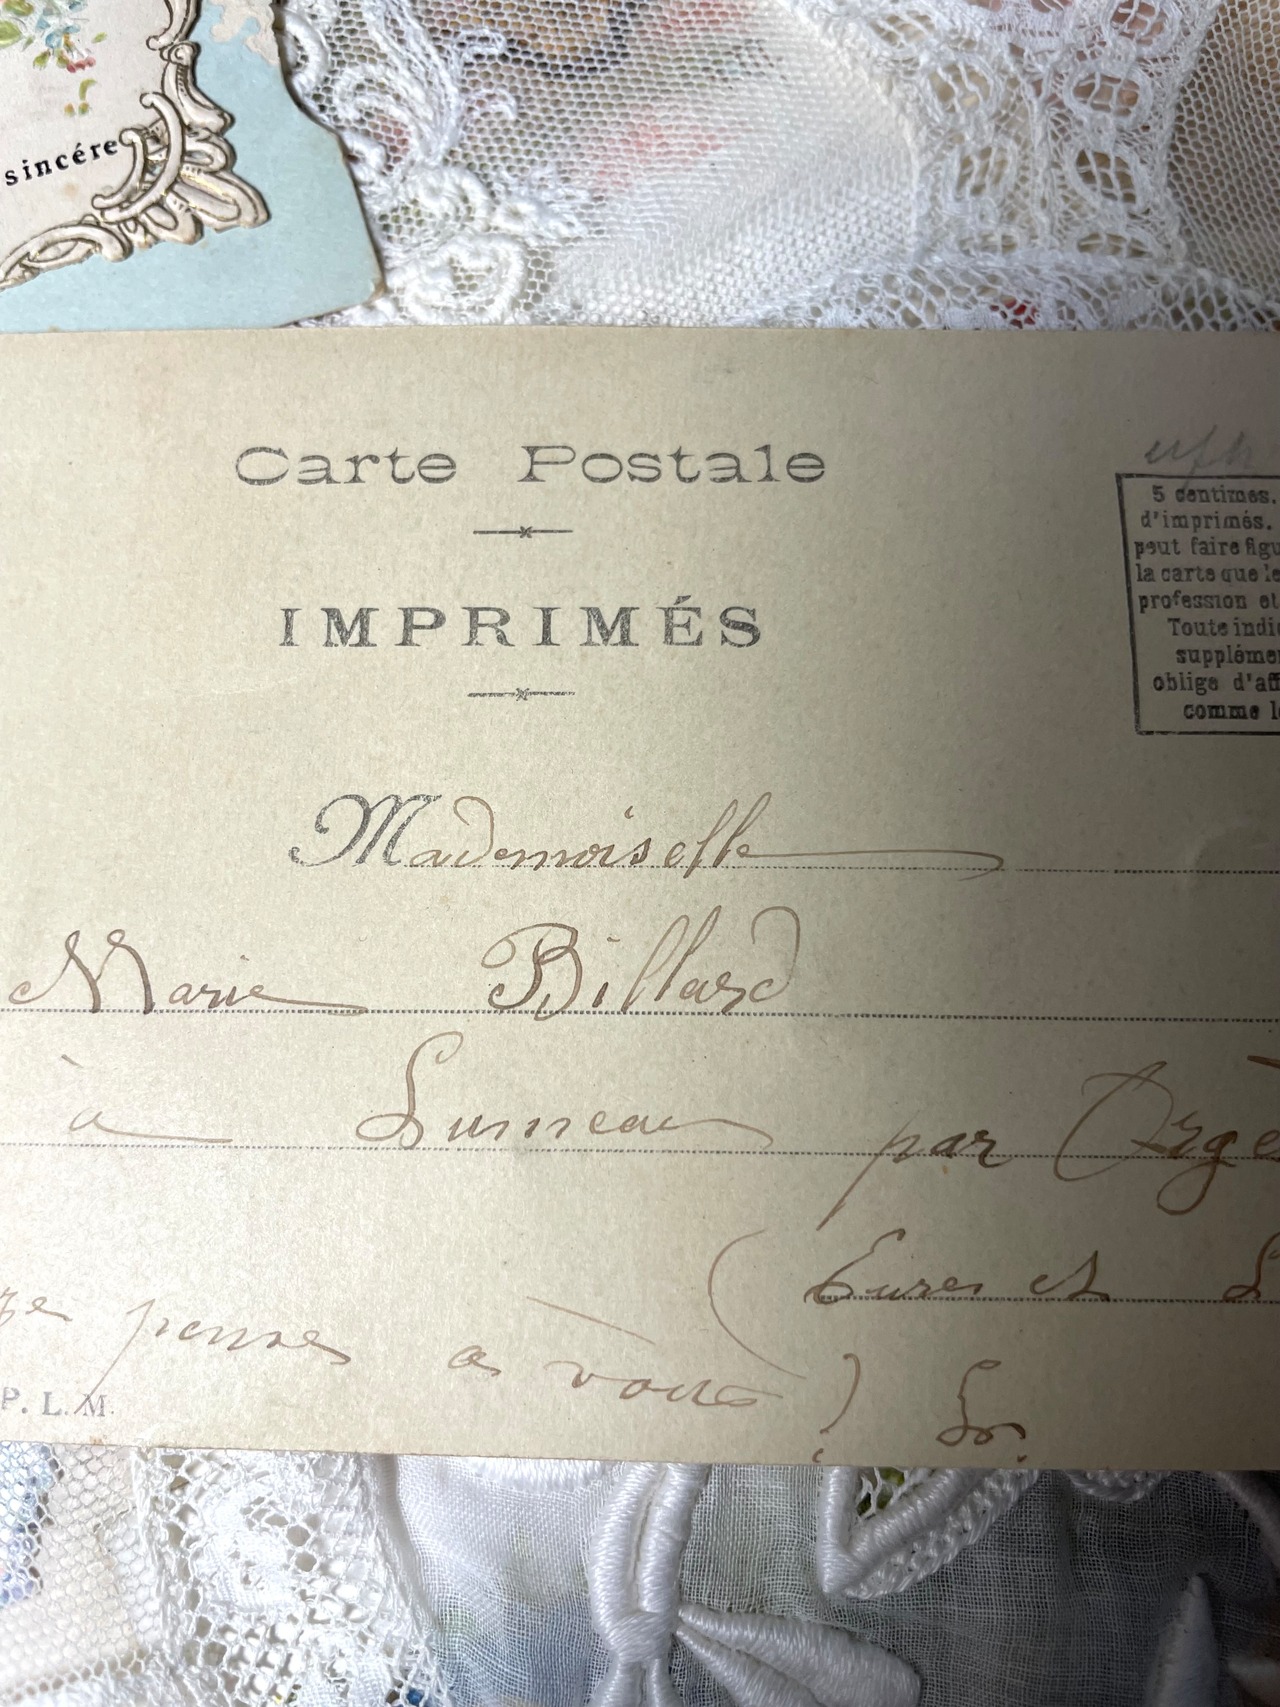 sincére
Carte Postale
5 centimes.
d'imprimés.
peut faire figu
la carte que le
profession et
Toute indic
supplémen
oblige d'aff
comme le
IMPRIMÉS
Mademoiselle
Marie Billard
à Lumeau par Orgè
(Eure et L
pense à vous!
P. L. M.